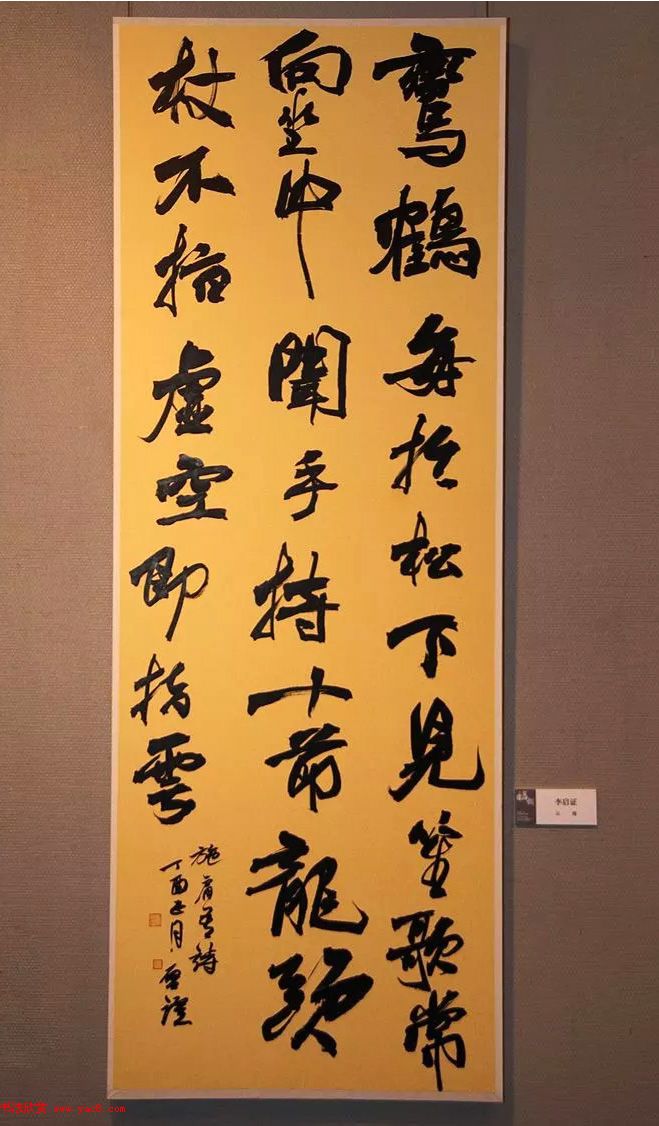 鸞鶴每於松下見笙歌常
向坐中聞手持十節龍頭
杖不指虛空即指雲
施肩吾詩
丁酉正月 啓證
李启证
书法欣赏 www.yac8.com